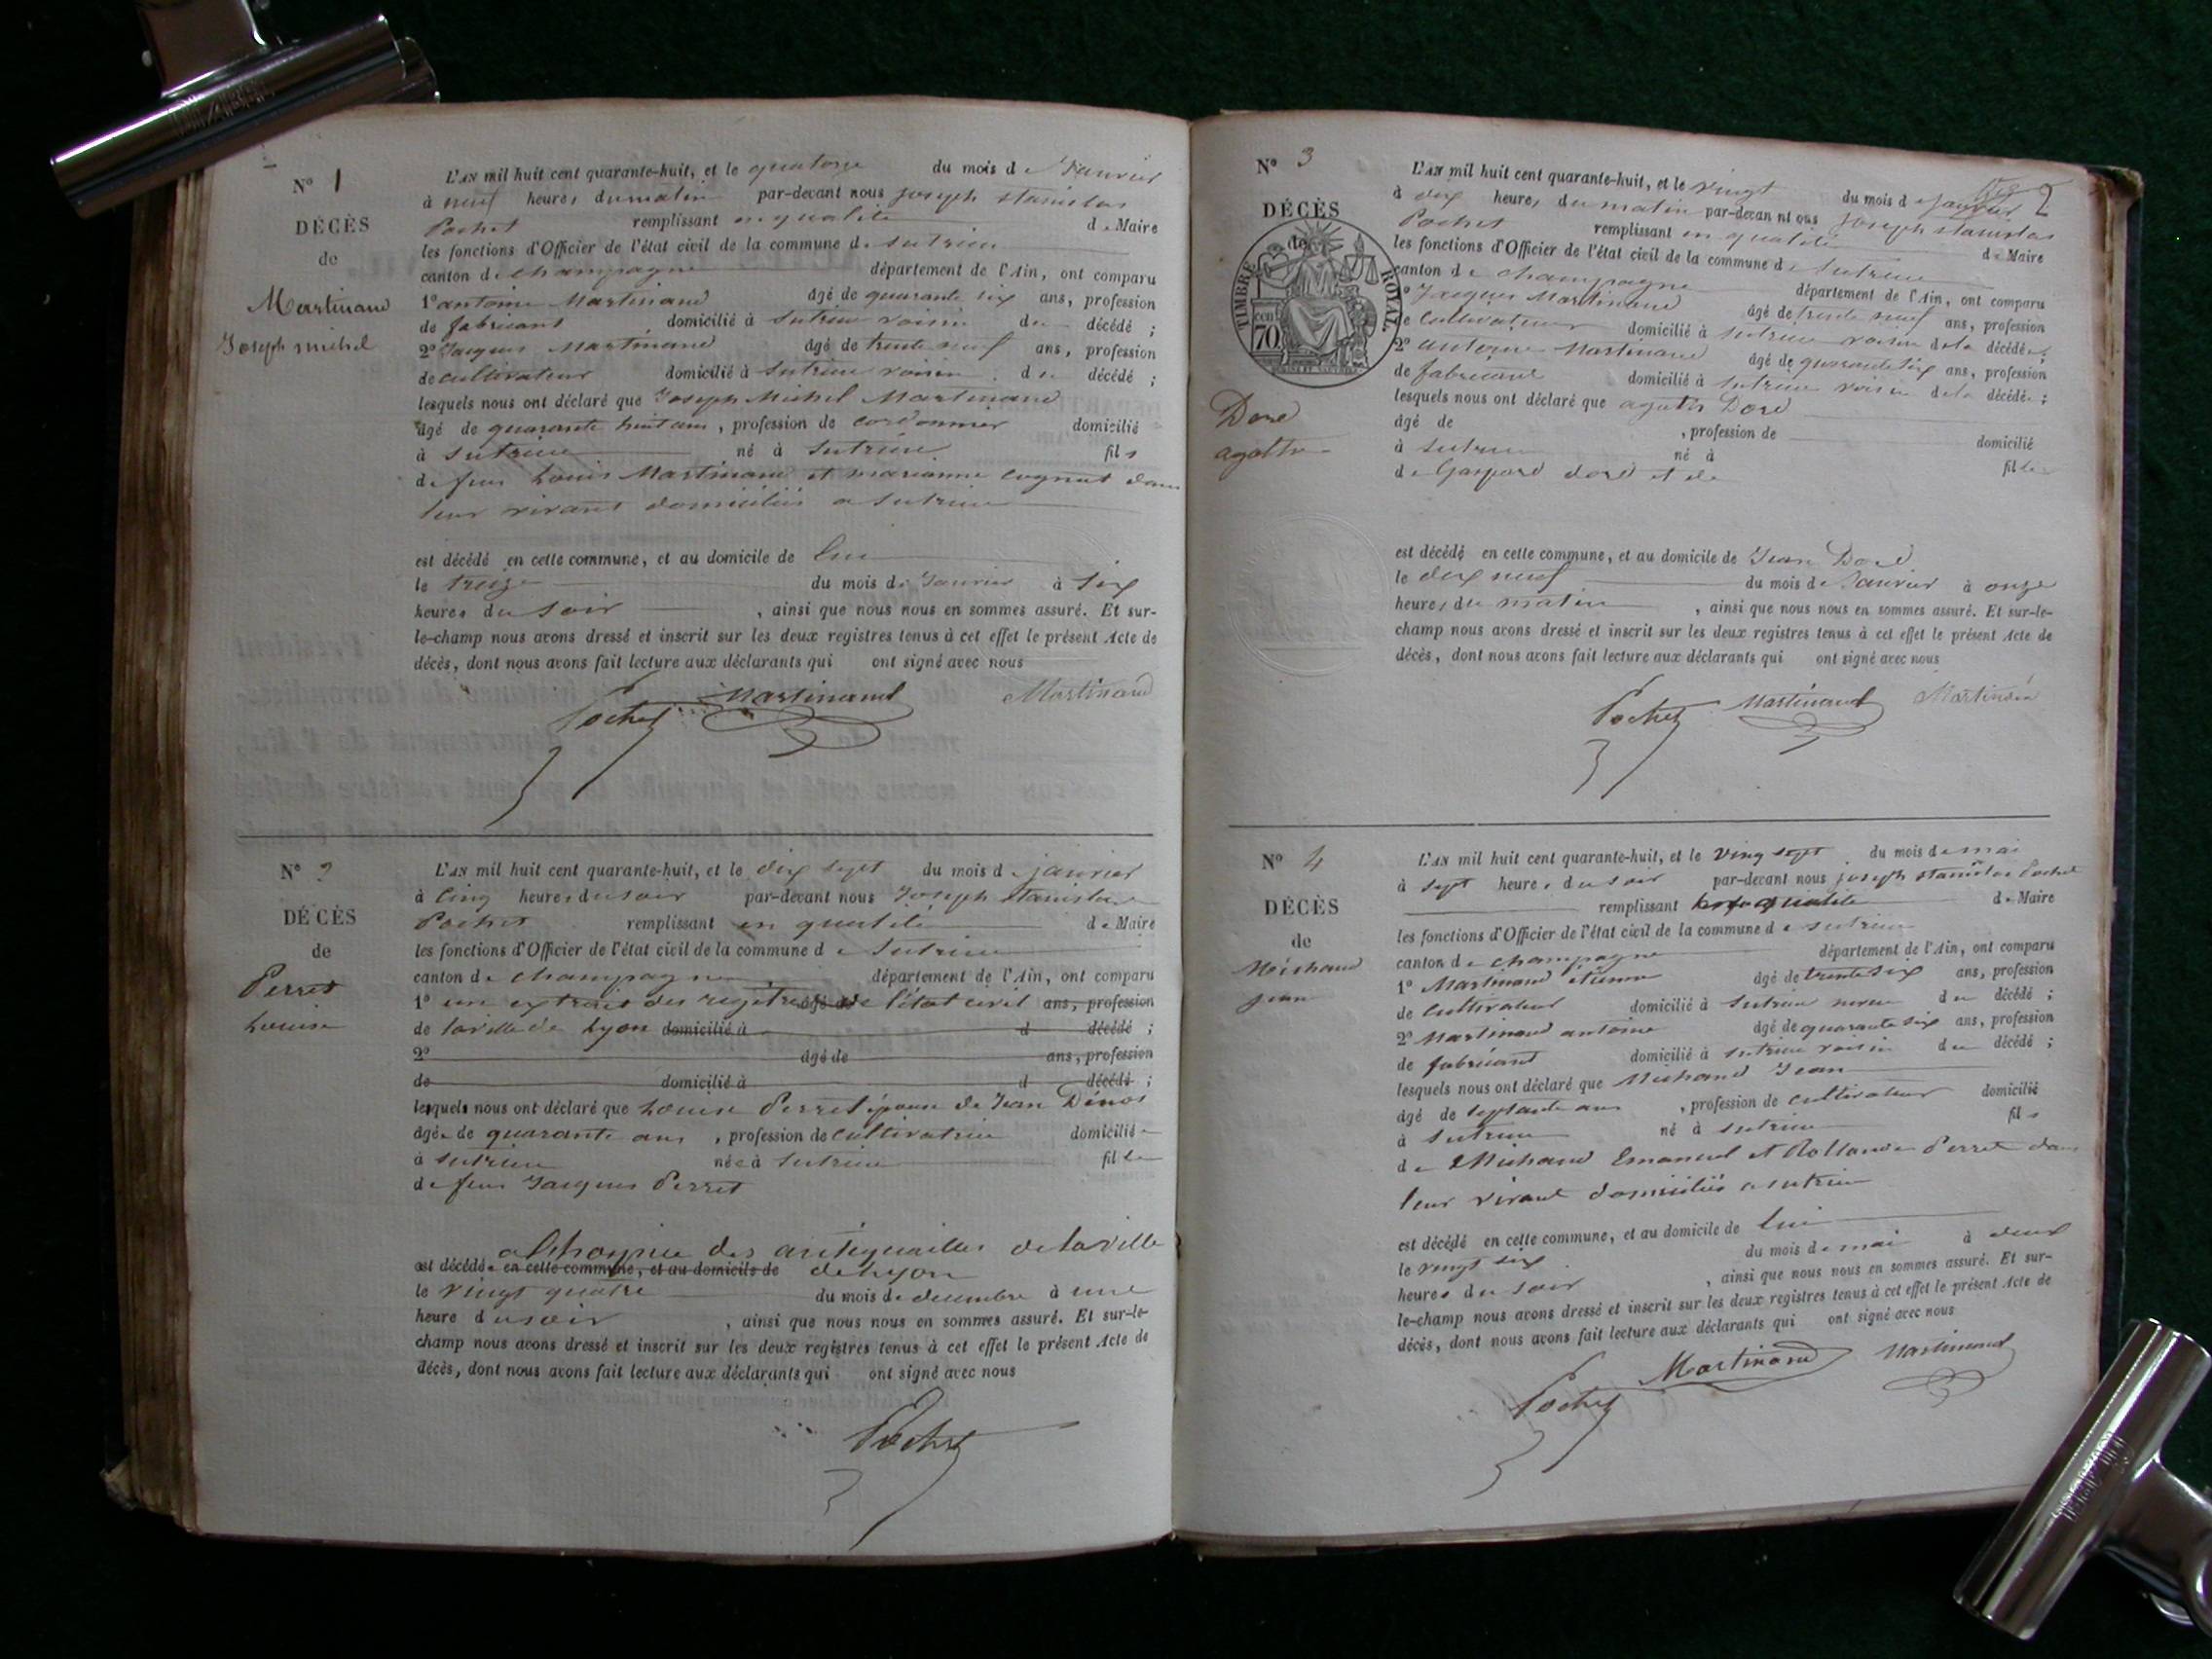 N° 1
DÉCÈS
de
Martinand
Joseph michel
L'AN mil huit cent quarante-huit, et le quatorze du mois de Janvier
à neuf heures du matin par-devant nous joseph stanislas
Pochet remplissant en qualité de Maire
les fonctions d'Officier de l'état civil de la commune de Sutrieu
canton de champagne département de l'Ain, ont comparu
1° antoine Martinand âgé de quarante six ans, profession
de fabricant domicilié à Sutrieu voisin du décédé ;
2° Jacques Martinand âgé de trente neuf ans, profession
de cultivateur domicilié à Sutrieu voisin du décédé ;
lesquels nous ont déclaré que Joseph Michel Martinand
âgé de quarante huit ans, profession de cordonnier domicilié
à Sutrieu né à Sutrieu fils
de feu Louis Martinand et marianne cognat dans
leur vivant domiciliés a Sutrieu
est décédé en cette commune, et au domicile de lui
le treize du mois de Janvier à six
heures du soir, ainsi que nous nous en sommes assuré. Et sur-
le-champ nous avons dressé et inscrit sur les deux registres tenus à cet effet le présent Acte de
décès, dont nous avons fait lecture aux déclarants qui ont signé avec nous
Pochet Martinand Martinand
N° 2
DÉCÈS
de
Perret
Louise
L'AN mil huit cent quarante-huit, et le dix sept du mois de janvier
à cinq heures du soir par-devant nous Joseph stanislas
Pochet remplissant en qualité de Maire
les fonctions d'Officier de l'état civil de la commune de Sutrieu
canton de champagne département de l'Ain, ont comparu
1° un extrait des registres âgé de de l'état civil ans, profession
de la ville de Lyon domicilié à d décédé ;
2° âgé de ans, profession
de domicilié à d décédé ;
lesquels nous ont déclaré que Louise Perret épouse de Jean
âgée de quarante ans, profession de cultivatrice domiciliée
à Sutrieu née à Sutrieu fille
de feu Jacques Perret
a l'hospice des antiquailles de la ville
est décédée en cette commune, et au domicile de de Lyon
le vingt quatre du mois de decembre à une
heure du soir, ainsi que nous nous en sommes assuré. Et sur-le-
champ nous avons dressé et inscrit sur les deux registres tenus à cet effet le présent Acte de
décès, dont nous avons fait lecture aux déclarants qui ont signé avec nous
Pochet
2
N° 3
DÉCÈS
de
TIMBRE ROYAL
70 cent
Doré
agathe
L'AN mil huit cent quarante-huit, et le vingt du mois de janvier
à dix heures du matin par-devan nt ous Joseph stanislas
Pochet remplissant en qualité de Maire
les fonctions d'Officier de l'état civil de la commune de Sutrieu
canton de champagne département de l'Ain, ont comparu
1° Jacques Martinand âgé de trente neuf ans, profession
de cultivateur domicilié à Sutrieu voisin de la décédée ;
2° antoine Martinand âgé de quarante six ans, profession
de fabricant domicilié à Sutrieu voisin de la décédée ;
lesquels nous ont déclaré que agathe Doré
âgé de , profession de domicilié
à Sutrieu né à fille
de Gaspard doré et de
est décédé en cette commune, et au domicile de Jean Doré
le dix neuf du mois de Janvier à onze
heures du matin, ainsi que nous nous en sommes assuré. Et sur-le-
champ nous avons dressé et inscrit sur les deux registres tenus à cet effet le présent Acte de
décès, dont nous avons fait lecture aux déclarants qui ont signé avec nous
Pochet Martinand Martinand
N° 4
DÉCÈS
de
Michaud
jean
L'AN mil huit cent quarante-huit, et le ving sept du mois de mai
à sept heures du soir par-devant nous joseph stanislas Pochet
remplissant qualité de Maire
les fonctions d'Officier de l'état civil de la commune de Sutrieu
canton de champagne département de l'Ain, ont comparu
1° Martinand étienne âgé de trente six ans, profession
de cultivateur domicilié à Sutrieu neveu du décédé ;
2° Martinand antoine âgé de quarante six ans, profession
de fabricant domicilié à Sutrieu voisin du décédé ;
lesquels nous ont déclaré que Michaud Jean
âgé de septante ans, profession de cultivateur domicilié
à Sutrieu né à Sutrieu fils
de Michaud Emanuel et Perret dans
leur vivant domiciliés a Sutrieu
est décédé en cette commune, et au domicile de lui
le vingt six du mois de mai à deux
heures du soir, ainsi que nous nous en sommes assuré. Et sur-
le-champ nous avons dressé et inscrit sur les deux registres tenus à cet effet le présent Acte de
décès, dont nous avons fait lecture aux déclarants qui ont signé avec nous
Pochet Martinand Martinand